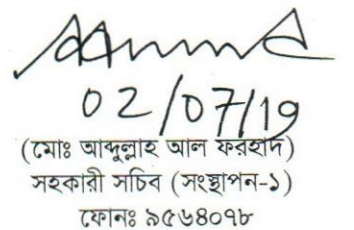 02/07/19
(মোঃ আব্দুল্লাহ আল ফরহাদ)
সহকারী সচিব (সংস্থাপন-১)
ফোনঃ ৯৫৬৪০৭৮